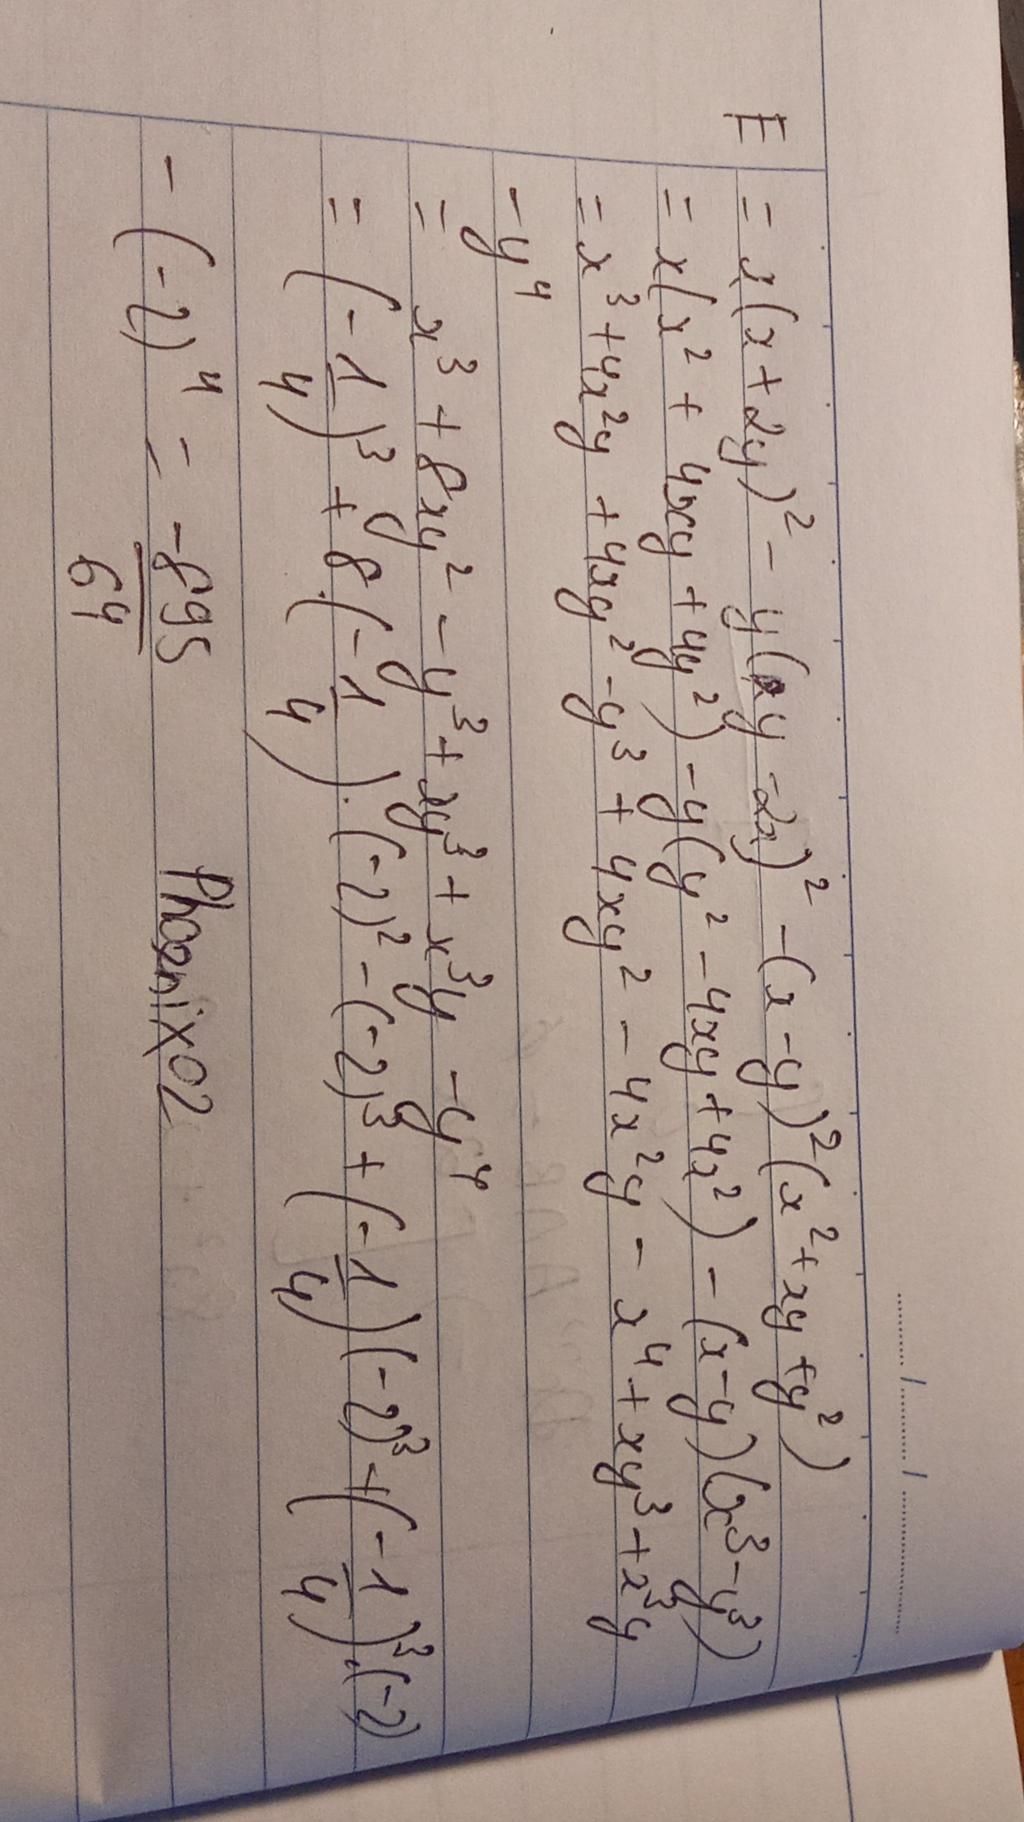 E = x(x+2y)² - y(y-2x)² - (x-y)²(x²+xy+y²)
= x(x² + 4xy + 4y²) - y(y² - 4xy + 4x²) - (x-y)(x³-y³)
= x³ + 4x²y + 4xy² - y³ + 4xy² - 4x²y - x⁴ + xy³ + x³y
- y⁴
= x³ + 8xy² - y³ + xy³ + x³y - y⁴
= (-1/4)³ + 8.(-1/4).(-2)² - (-2)³ + (-1/4)(-2)³ + (-1/4)³.(-2)
- (-2)⁴ = -895/64 Phoenix02